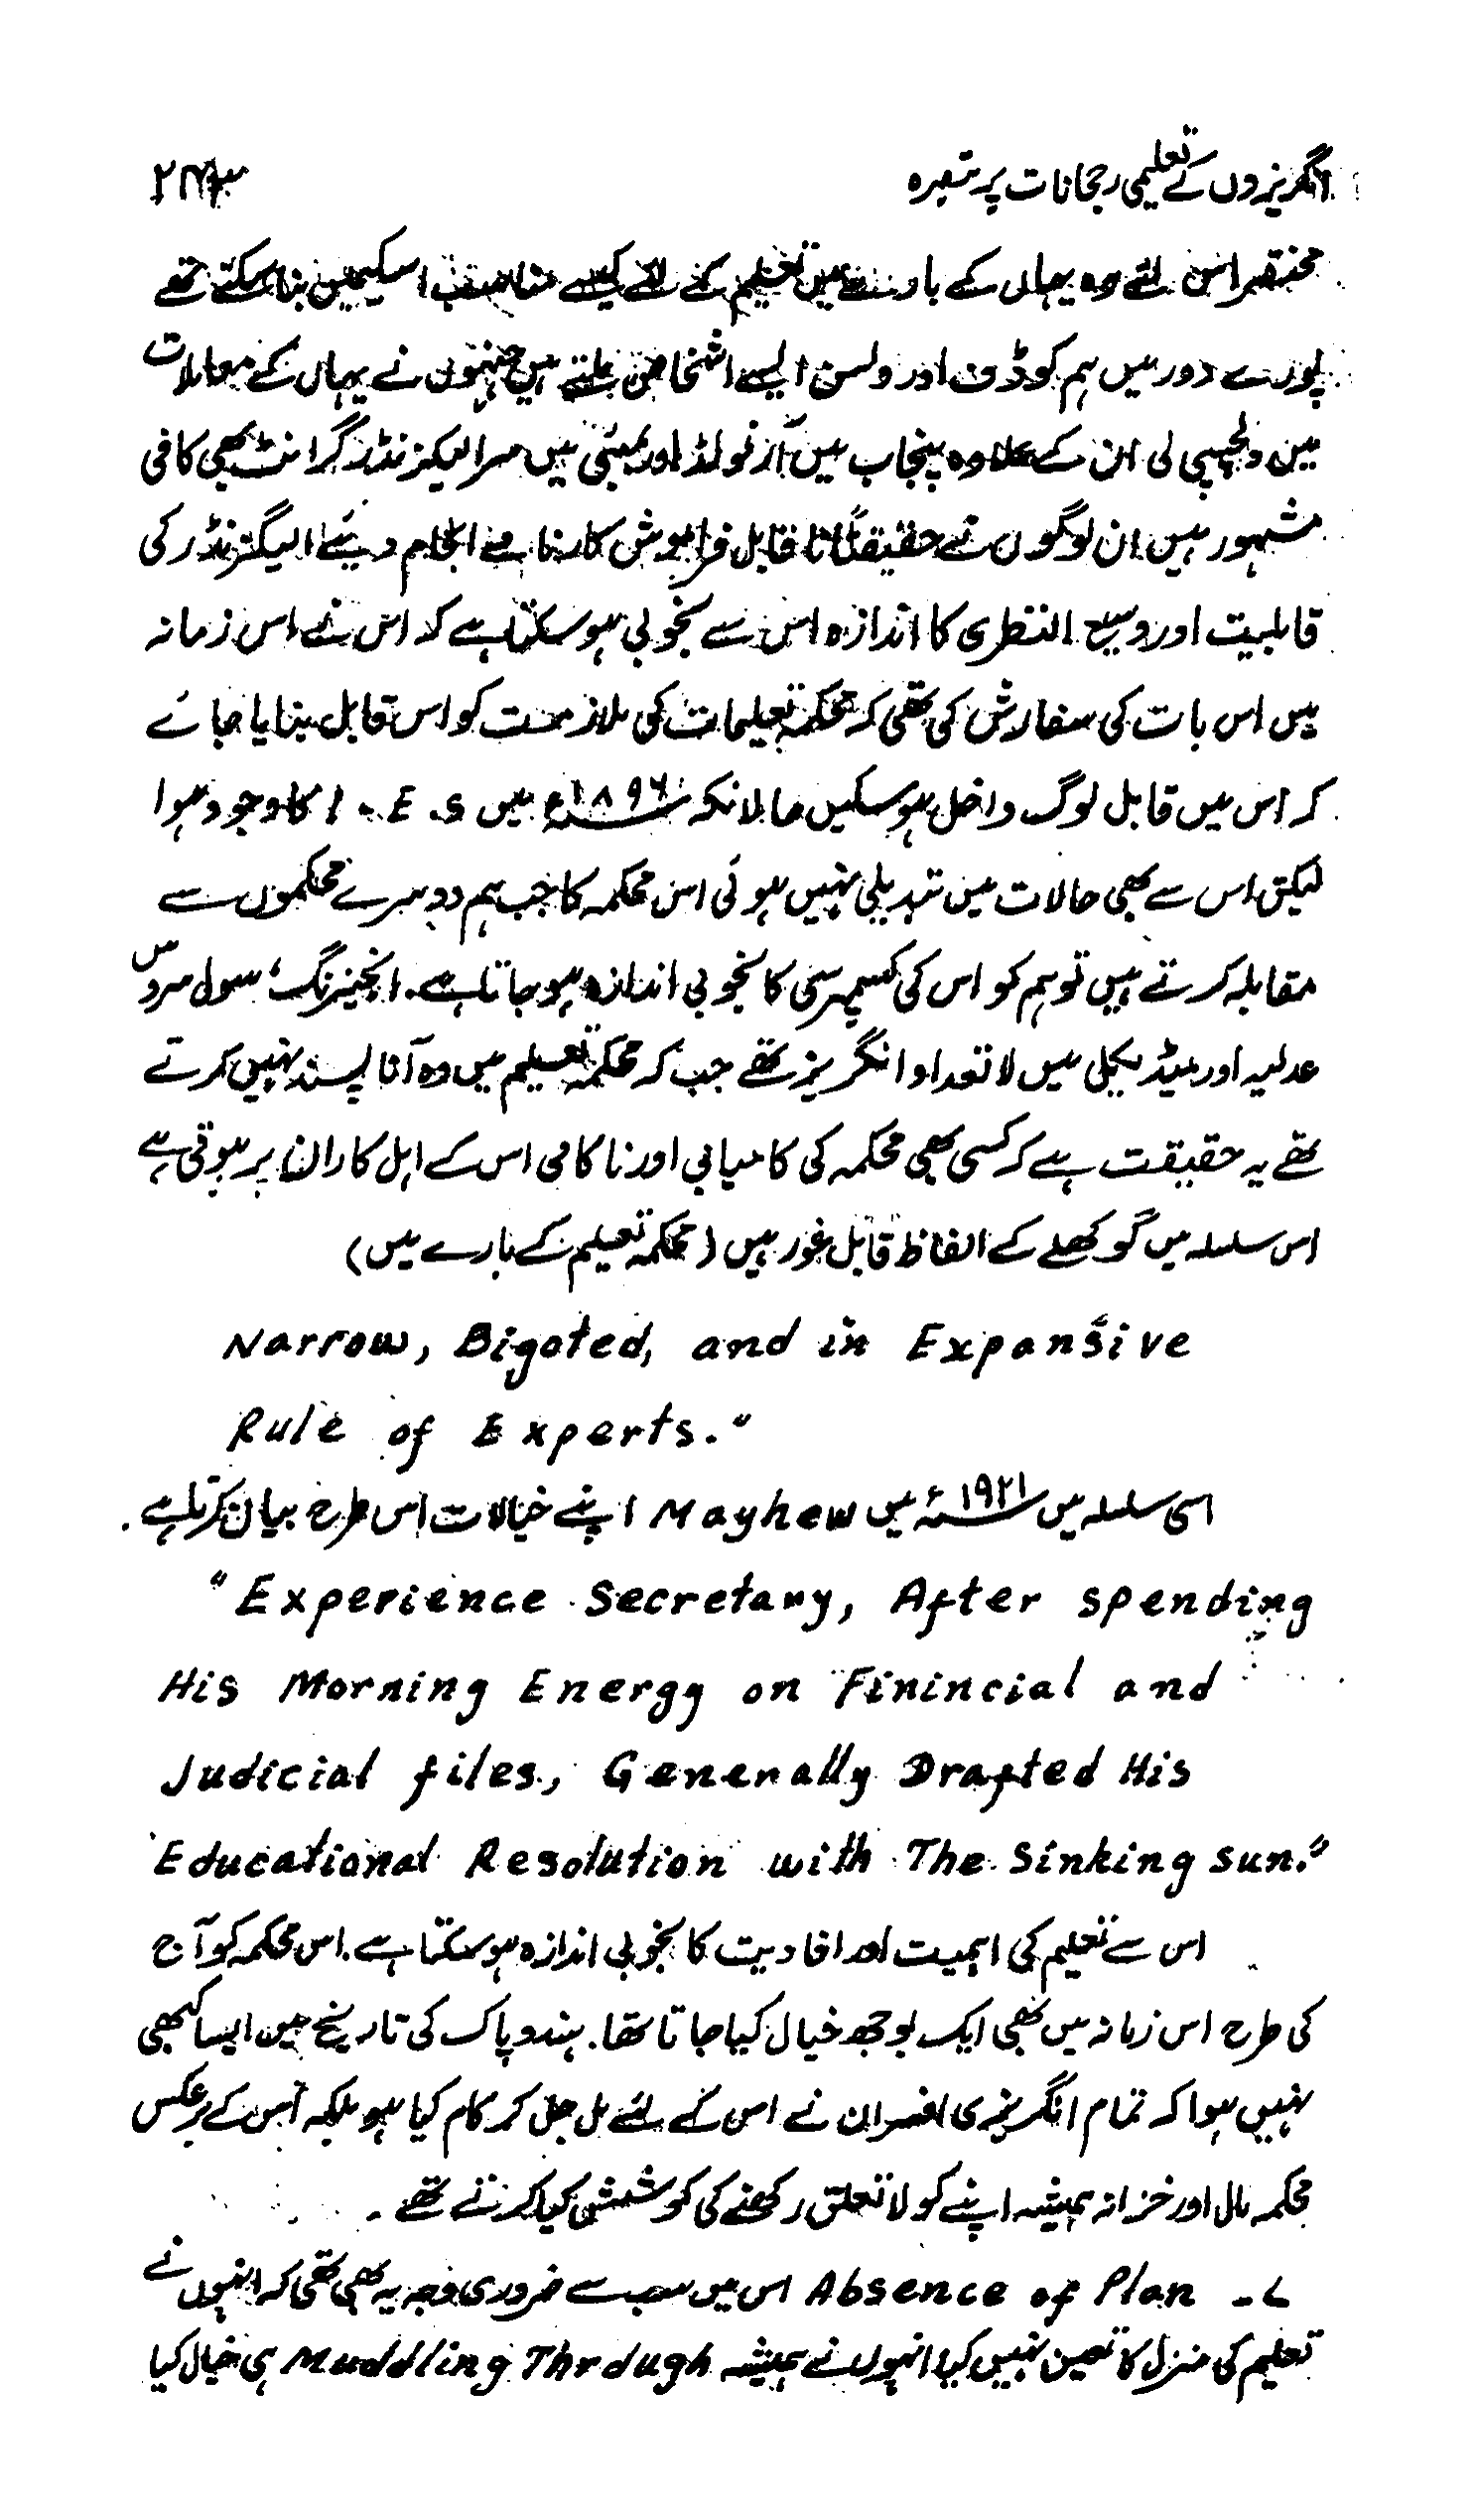 انگریزوں کے تعلیمی رجحانات پر تبصرہ
مختصر اس لئے وہ یہاں کے بارے میں تعلیم کے لئے کیسے مناسب اسکیمیں بنا سکتے تھے
پورے دور میں ہم کو ڈف اور ولسن ایسے اشخاص ملتے ہیں جنہوں نے یہاں کے معاملات
میں دلچسپی لی ان کے علاوہ پنجاب میں آرنولڈ اور بمبئی میں سر الیکزنڈر گرانٹ بھی کافی
مشہور ہیں ان لوگوں نے حقیقتاً ناقابل فراموش کارنامے انجام دیئے الیگزنڈر کی
قابلیت اور وسیع النظری کا اندازہ اس سے بخوبی ہو سکتا ہے کہ اس نے اس زمانہ
میں اس بات کی سفارش کی تھی کہ محکمہ تعلیمات کی ملازمت کو اس قابل بنایا جائے
کہ اس میں قابل لوگ داخل ہو سکیں حالانکہ ۱۸۹۶ء میں I. E. S کا وجود ہوا
لیکن اس سے بھی حالات میں تبدیلی نہیں ہوئی اس محکمہ کا جب ہم دوسرے محکموں سے
مقابلہ کرتے ہیں تو ہم کو اس کی کسمپرسی کا بخوبی اندازہ ہو جاتا ہے۔ انجینرنگ، سول سروس
عدلیہ اور میڈیکل میں لا تعداد انگریز تھے جب کہ محکمہ تعلیم میں وہ آنا پسند نہیں کرتے
تھے یہ حقیقت ہے کہ کسی بھی محکمہ کی کامیابی اور ناکامی اس کے اہل کاران پر ہوتی ہے
اس سلسلہ میں گوکھلے کے الفاظ قابل غور ہیں (محکمہ تعلیم کے بارے میں)
Narrow, Bigoted, and in Expansive
Rule of Experts."
اسی سلسلہ میں ۱۹۲۱ء میں Mayhew اپنے خیالات اس طرح بیان کرتا ہے۔
"Experience Secretary, After spending
His Morning Energy on Finincial and
Judicial files, Genenally Drafted His
Educational Resolution with The Sinking sun."
اس سے تعلیم کی اہمیت اور افادیت کا بخوبی اندازہ ہو سکتا ہے۔ اس محکمہ کو آج
کی طرح اس زمانہ میں بھی ایک بوجھ خیال کیا جاتا تھا۔ ہند و پاک کی تاریخ میں ایسا کبھی
نہیں ہوا کہ تمام انگریزی افسران نے اس کے لئے مل جل کر کام کیا ہو بلکہ اس کے برعکس
محکمہ مال اور خزانہ ہمیشہ اپنے کو لا تعلق رکھنے کی کوشش کیا کرتے تھے۔
۷- Absence of Plan اس میں سب سے ضروری وجہ یہ بھی تھی کہ انہوں نے
تعلیم کی منزل کا تعین نہیں کیا انہوں نے ہمیشہ Muddling Through ہی خیال کیا